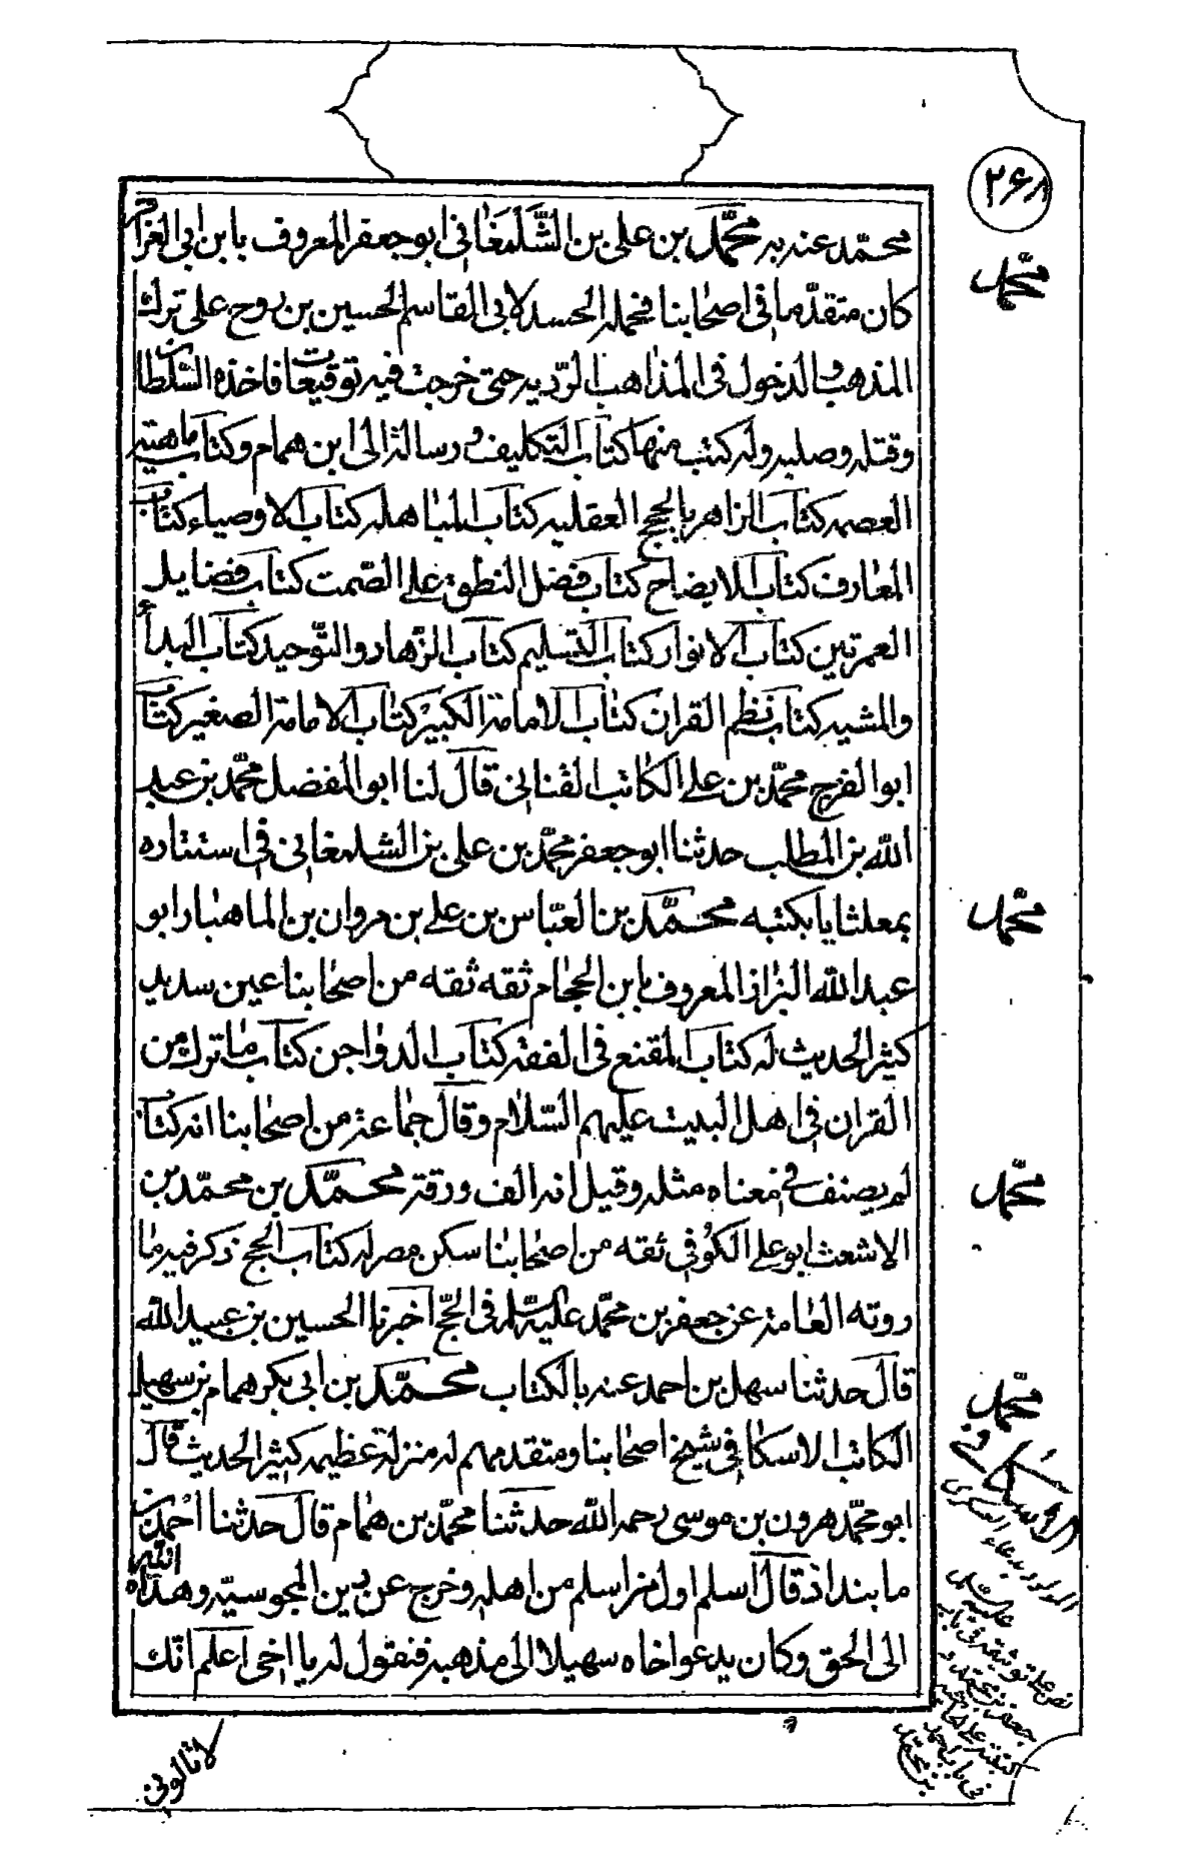 ٢٦٨
محمّد عنه به محمّد بن علی بن الشّلمغانی ابو جعفر المعروف بابن ابی العزاقر
كان متقدّما فی اصحابنا فحمله الحسد لابی القاسم الحسین بن روح علی ترك
المذهب و الدخول فی المذاهب الردیه حتی خرجت فیه توقیعات فاخذه السّلطان
وقتله وصلبه وله كتب منها كتاب التكلیف و رسالة الی ابن همام وكتاب ماهیته
العصمه كتاب الزاهر بالحجج العقلیه كتاب المباهله كتاب الاوصیاء كتاب
المعارف كتاب الایضاح كتاب فضل النطق علی الصّمت كتاب فضایل
العمرتین كتاب الانوار كتاب التسلیم كتاب الزّهار و التّوحید كتاب البدأ
والمشیه كتاب نظم القران كتاب الامامة الكبیر كتاب الامامة الصغیر كتاب
ابو الفرج محمّد بن علی الكاتب القنانی قال لنا ابو المفضل محمّد بن عبد
الله بن المطلب حدثنا ابو جعفر محمّد بن علی بن الشلمغانی فی استتاره
بمعلثایا بكتبه محمّد بن العبّاس بن علی بن مروان بن الماهیار ابو
عبد الله البزاز المعروف بابن الحجام ثقه ثقه من اصحابنا عین سدید
كثیر الحدیث له كتاب المقنع فی الفقه كتاب الدواجن كتاب ما ترك من
القران فی اهل البیت علیهم السّلام وقال جماعة من اصحابنا انه كتاب
لم یصنف فی معناه مثله وقیل انه الف ورقة محمّد بن محمّد بن
الاشعث ابو علی الكوفی ثقه من اصحابنا سكن مصر له كتاب الحج ذكر فیه ما
روته العامة عن جعفر بن محمّد علیه السّلم فی الحجّ اخبرنا الحسین بن عبید الله
قال حدثنا سهل بن احمد عنه بالكتاب محمّد بن ابی بكر همام بن سهیل
الكاتب الاسكافی شیخ اصحابنا ومتقدمهم له منزلة عظیمه كثیر الحدیث قال
ابو محمّد هرون بن موسی رحمه الله حدثنا محمّد بن همام قال حدثنا احمد بن
ما بنداذ قال اسلم اول من اسلم من اهله وخرج عن دین المجوسیّه وهداه الله
الی الحق وكان یدعوا خاه سهیلا الی مذهبه فنقول له یا اخی اعلم انّك
محمّد
محمّد
محمّد
محمّد
الاسكافی
المولود بدعاء العسكری
علیه السّلم